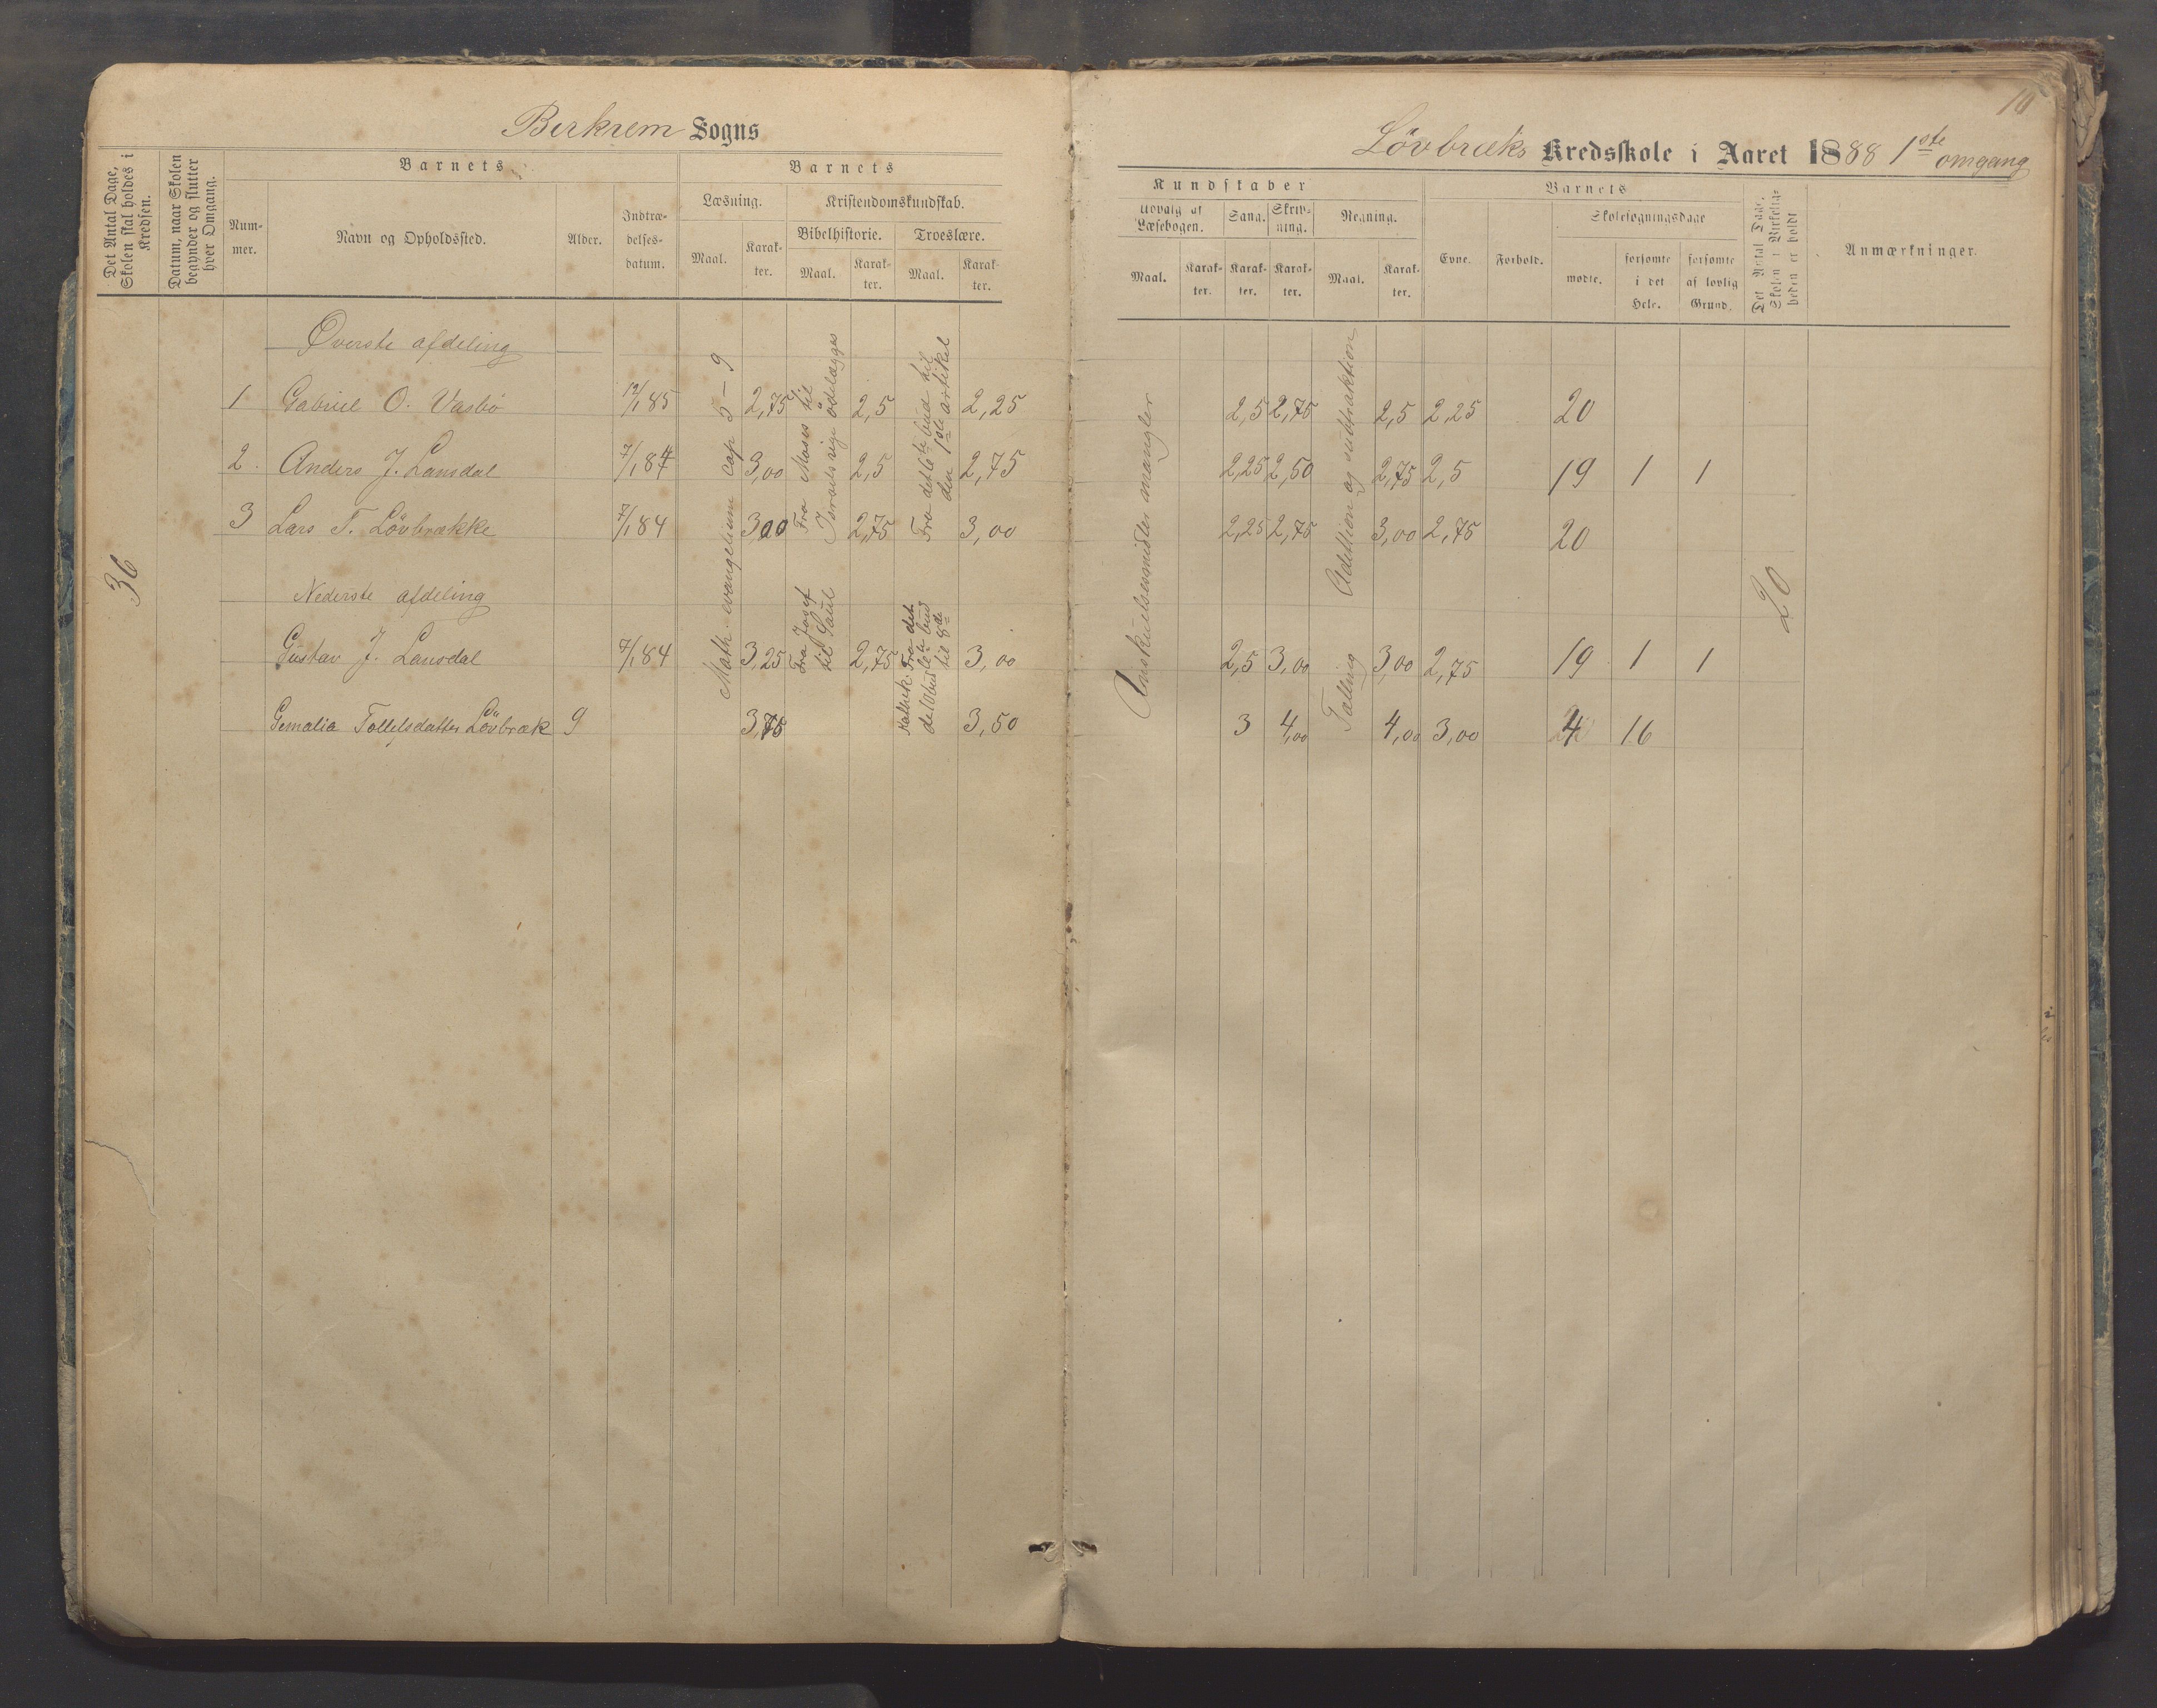 Birkrem Sogns
Det Antal Dage, Skolen skal holdes i Kredsen.
Datum, naar Skolen begynder og slutter hver Omgang.
Barnets
Num-
mer.
Navn og Opholdssted.
Alder.
Indtræ-
delses-
datum.
Barnets
Læsning.
Maal.
Karak-
ter.
Kristendomskundskab.
Bibelhistorie.
Maal.
Karak-
ter.
Troeslære.
Maal.
Karak-
ter.
Øverste afdeling
1 Gabriel O. Vasbø 12/1 85 2,75 2,5 2,25
2. Anders J. Lansdal 7/1 84 3,00 2,5 2,75
3 Lars T. Lövbrække 7/1 84 3,00 2,75 3,00
36
Nederste afdeling
Gustav J. Lansdal 7/1 84 3,25 2,75 3,00
Gemalia Tollefsdatter Lövbræk 9 3,75 3,50
Math. evangelium cap 5-9
Fra Moses til
Israels rige ödelægges
Fra det 6te bud til
den 1ste artikel
Fra Josef
til Saul
Fra det
6te bud
til 8de
10
Lövbræks Kredsskole i Aaret 1888 1ste omgang
Kundskaber
Udvalg af
Læsebogen.
Maal.
Karak-
ter.
Sang.
Karak-
ter.
Skriv-
ning.
Karak-
ter.
Regning.
Maal.
Karak-
ter.
Barnets
Evne.
Forhold.
Skolesøgningsdage
mødte.
forsømte
i det
Hele.
forsømte
af lovlig
Grund.
Det Antal Dage,
Skolen i Virkelig-
heden er holdt
Anmærkninger.
Anskuelsesmidler mangler
Addition og subtraktion
Tælling
2,5 2,75 2,5 2,25 20
2,25 2,50 2,75 2,5 19 1 1
2,25 2,75 3,00 2,75 20
20
2,5 3,00 3,00 2,75 19 1 1
3 4,00 4,00 3,00 4 16